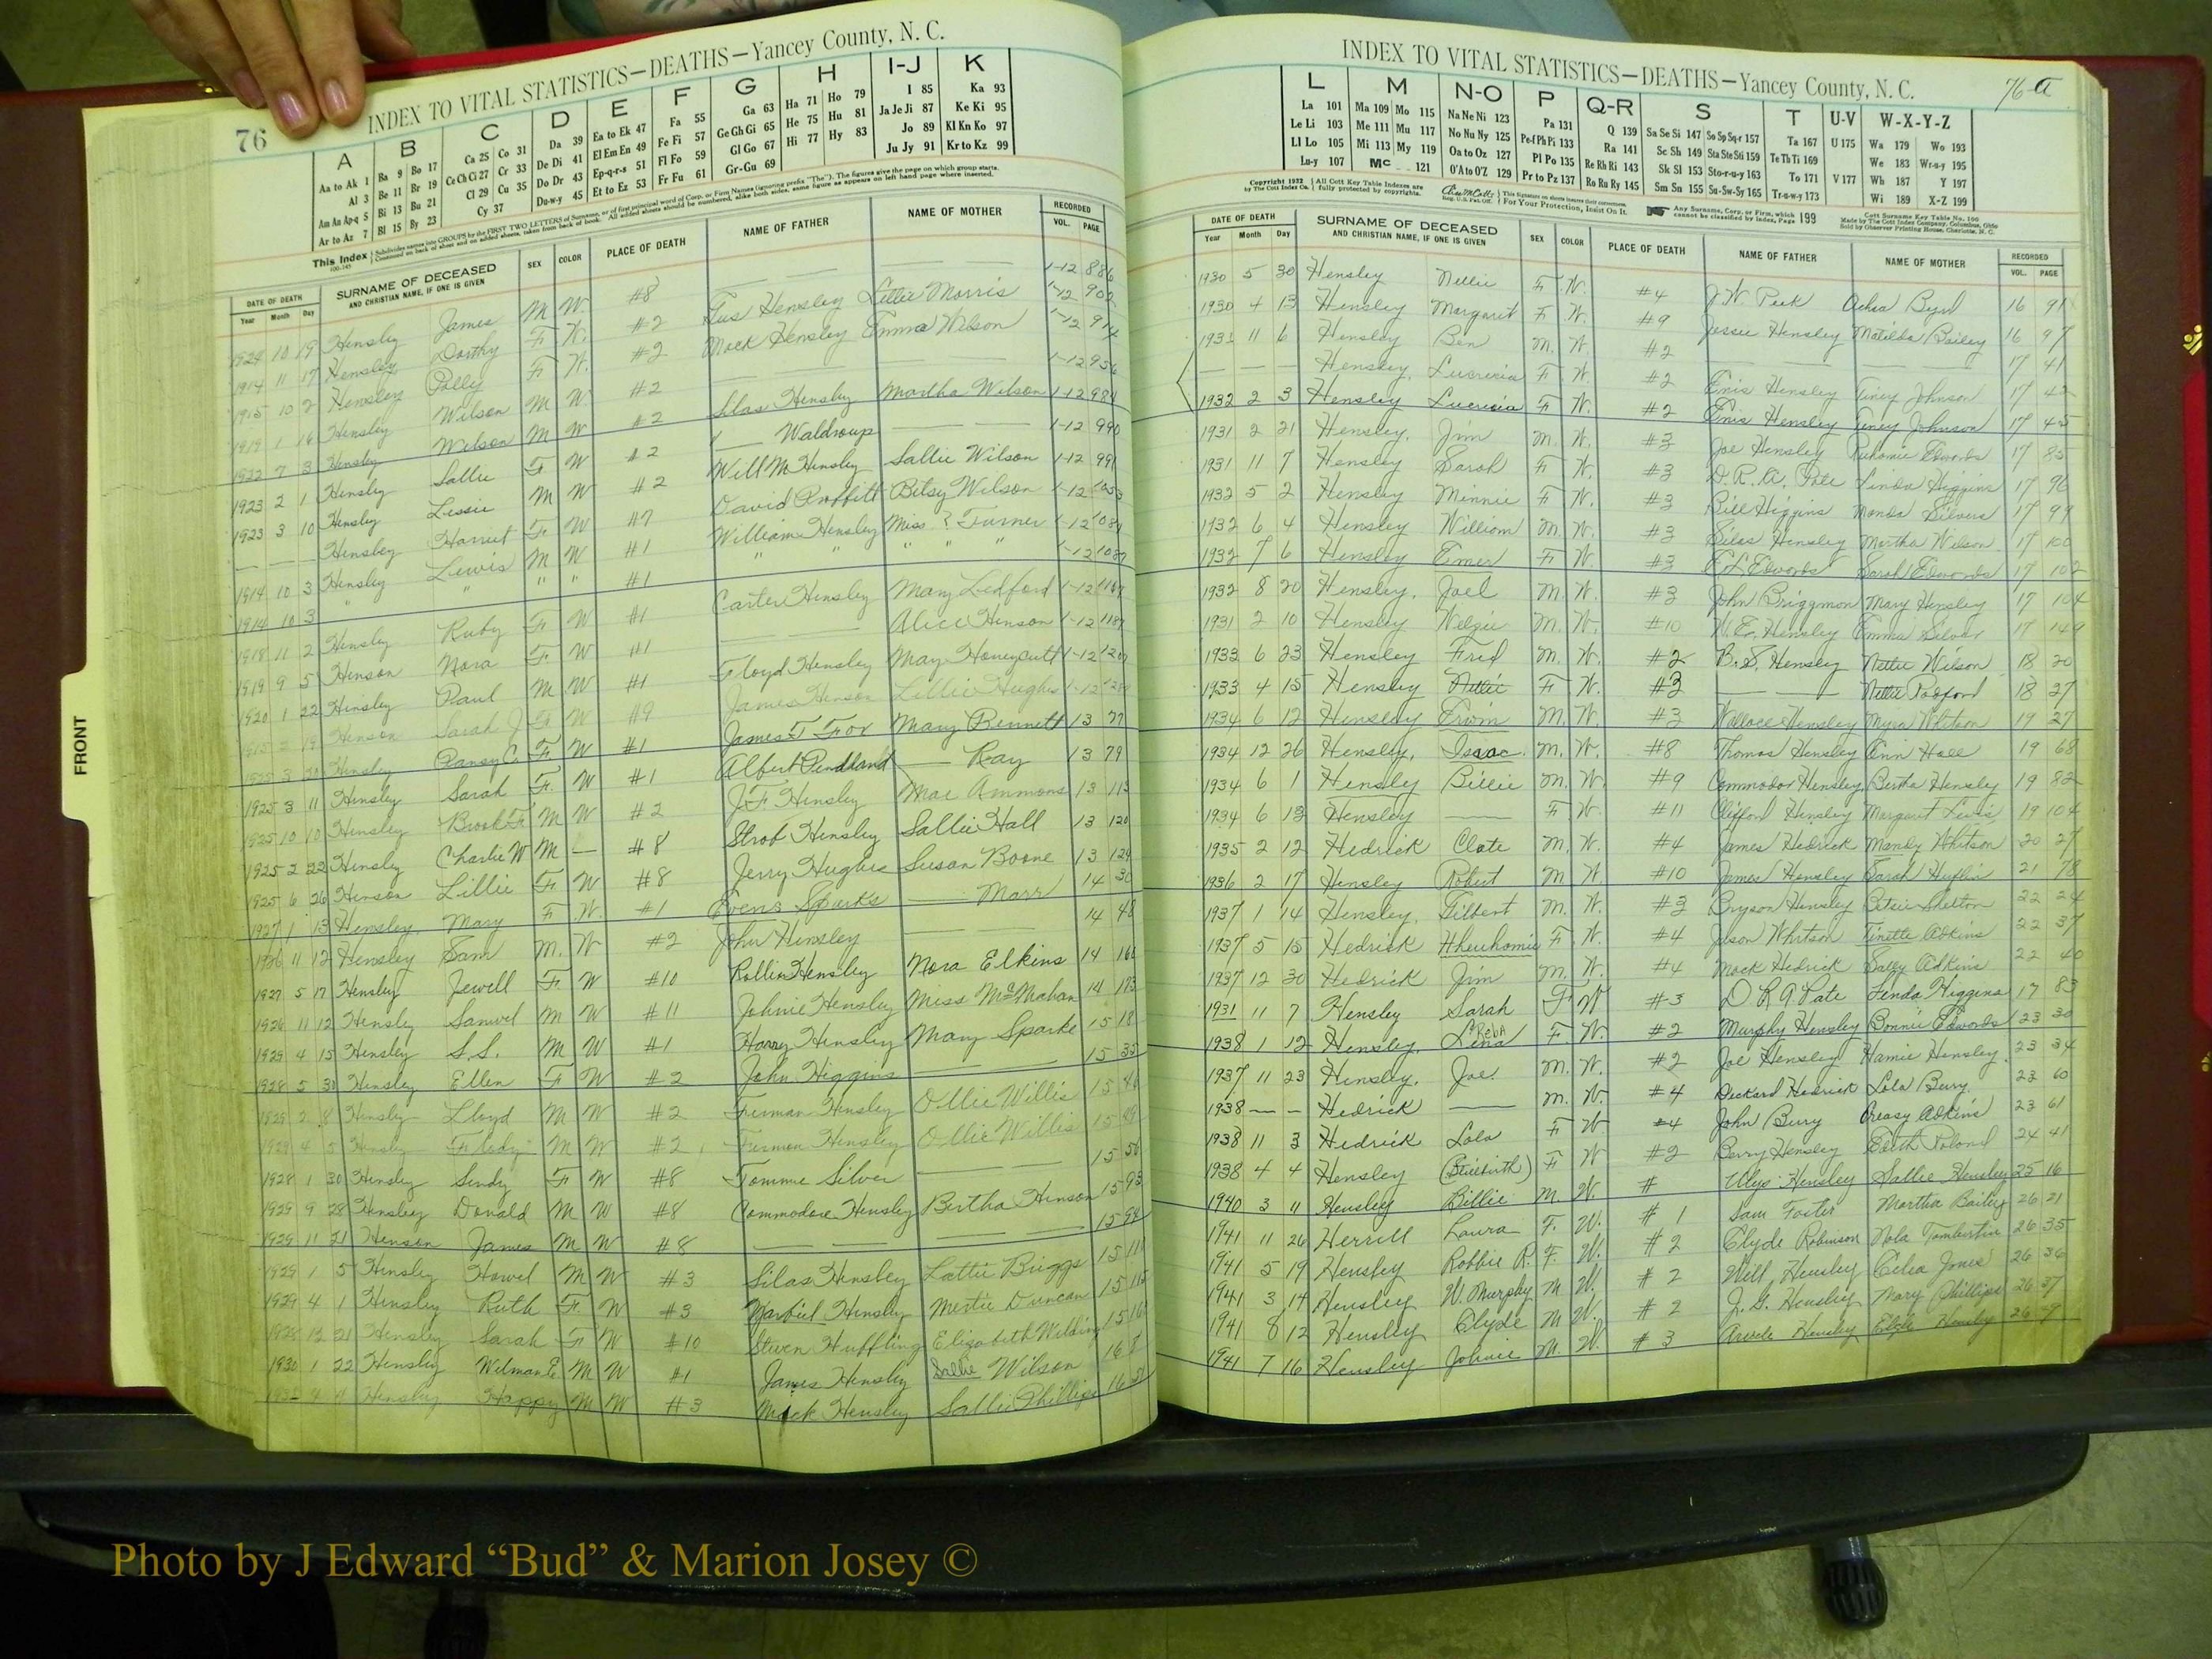 76
INDEX TO VITAL STATISTICS—DEATHS—Yancey County, N. C.
A B C D E F G H I-J K
Aa to Ak 1 Ba 9 Bo 17 Ca 25 Co 31 Da 39 Ea to Ek 47 Fa 55 Ga 63 Ha 71 Ho 79 I 85 Ka 93
Al 3 Be 11 Br 19 Ce Ch Ci 27 Cr 33 De Di 41 El Em En 49 Fe Fi 57 Ge Gh Gi 65 He 75 Hu 81 Ja Je Ji 87 Ke Ki 95
Am An Ap-q 5 Bi 13 Bu 21 Cl 29 Cu 35 Do Dr 43 Ep-q-r-s 51 Fl Fo 59 Gl Go 67 Hi 77 Hy 83 Jo 89 Kl Kn Ko 97
Ar to Az 7 Bl 15 By 23 Cy 37 Du-w-y 45 Et to Ez 53 Fr Fu 61 Gr-Gu 69 Ju Jy 91 Kr to Kz 99
This Index
DATE OF DEATH SURNAME OF DECEASED SEX COLOR PLACE OF DEATH NAME OF FATHER NAME OF MOTHER RECORDED
Year Month Day AND CHRISTIAN NAME, IF ONE IS GIVEN VOL. PAGE
10 19 Hensley James M W #8 — — 1-12 886
1914 11 17 Hensley Dorthy F W. #2 Hensley Lillie Morris 1-12 902
1915 10 2 Hensley Polly F W. #2 Mack Hensley Emma Wilson 1-12 914
1919 1 16 Hensley Wilson M W #2 — — 1-12 956
1922 7 3 Hensley Wilson M W #2 Silas Hensley Martha Wilson 1-12 984
1923 2 1 Hensley Sallie F W #2 — Waldroup — 1-12 990
1923 3 10 Hensley Lessie M W #2 Will M Hensley Sallie Wilson 1-12 991
— — — Hensley Harriet F W #7 David Proffitt Bitsy Wilson 1-12 1053
1914 10 3 Hensley Lewis M W #1 William Hensley Miss ? Turner 1-12 1084
1914 10 3 " " " " #1 " " " " 1-12 1087
1918 11 2 Hensley Ruby F W #1 Carter Hensley Mary Ledford 1-12
1919 9 5 Henson Nora F W #1 — Alice Henson 1-12 1189
1920 1 22 Hensley Paul M W #1 Floyd Hensley May Honeycutt 1-12
Henson Sarah J F W #9 James Henson Lillie Hughes 1-12
1925 3 Hensley Pansy C F W #1 James T Fox Mary Bennett 13 77
1925 3 11 Hensley Sarah F W #1 Albert Pendland — Ray 13 79
1925 10 10 Hensley Brook M W #2 J F Hensley Mae Ammons 13 113
1925 2 22 Hensley Charlie W M — #8 Strob Hensley Sallie Hall 13 120
1925 6 26 Henson Lillie F W #8 Jerry Hughes Susan Boone 13 124
1927 1 13 Hensley, Mary F. W. #1 Evens Sparks — Marr 14 30
1926 11 12 Hensley Sam M. W #2 John Hensley — 14 48
1927 5 17 Hensley Jewell F W #10 Rollin Hensley Nora Elkins 14 166
1926 11 12 Hensley Samuel M W #11 Johnie Hensley Miss McMahan 14 173
1929 4 15 Hensley S.S. M W #1 Harry Hensley Mary Sparks 15 18
1928 5 30 Hensley Ellen F W #2 John Higgins — 15 35
1929 2 8 Hensley Lloyd M W #2 Furman Hensley Ollie Willis 15 46
1929 4 5 Hensley M W #2 Furman Hensley Ollie Willis 15 49
1928 1 30 Hensley Sindy F W #8 Tommie Silver — 15 56
1929 9 28 Hensley Donald M W #8 Commodore Hensley Bertha Henson 15 93
1929 11 21 Henson James M W #8 — — 15 94
1929 1 5 Hensley Howel M W #3 Silas Hensley Lottie Briggs 15 111
1929 4 1 Hensley Ruth F W #3 Hensley Mertie Duncan 15 115
1928 12 21 Hensley Sarah F W #10 Steven Huffling Elizabeth Wilding 15 161
1930 1 22 Hensley Wilman E. M W #1 James Hensley Sallie Wilson 16 8
Hensley Happy M W #3 Mack Hensley Sallie Phillips 16 51
FRONT
76-a
INDEX TO VITAL STATISTICS—DEATHS—Yancey County, N. C.
L M N-O P Q-R S T U-V W-X-Y-Z
La 101 Ma 109 Mo 115 Na Ne Ni 123 Pa 131 Q 139 Sa Se Si 147 So Sp Sq-r 157 Ta 167 U 175 Wa 179 Wo 193
Le Li 103 Me 111 Mu 117 No Nu Ny 125 Pe-f Ph Pi 133 Ra 141 Sc Sh 149 Sta Ste Sti 159 Te Th Ti 169 We 183 Wr-u-y 195
Ll Lo 105 Mi 113 My 119 Oa to Oz 127 Pl Po 135 Re Rh Ri 143 Sk Sl 153 Sto-r-u-y 163 To 171 V 177 Wh 187 Y 197
Lu-y 107 Mc 121 O'A to O'Z 129 Pr to Pz 137 Ro Ru Ry 145 Sm Sn 155 Su-Sw-Sy 165 Tr-u-w-y 173 Wi 189 X-Z 199
Copyright 1932 by The Cott Index Co. All Cott Key Table Indexes are fully protected by copyrights. For Your Protection, Insist On It. Any Surname, Corp. or Firm, which cannot be classified by Index, Page 199
DATE OF DEATH SURNAME OF DECEASED SEX COLOR PLACE OF DEATH NAME OF FATHER NAME OF MOTHER RECORDED
Year Month Day AND CHRISTIAN NAME, IF ONE IS GIVEN VOL. PAGE
1930 5 30 Hensley Nellie F. W. #4 J. W. Peek Byrd 16 91
1930 4 13 Hensley Margarit F W. #9 Jessie Hensley Matilda Bailey 16 97
1931 11 6 Hensley Ben M. W. #2 — — 17 41
— — — Hensley, Lucrecia F W. #2 Enis Hensley Tiney Johnson 17 42
1932 2 3 Hensley Lucrecia F W. #2 Enis Hensley Tiney Johnson 17 45
1931 2 21 Hensley, Jim M. W. #3 Joe Hensley Edwards 17 85
1931 11 7 Hensley Sarah F W. #3 D. R. A. Pate Linda Higgins 17 96
1932 5 2 Hensley Minnie F W. #3 Bill Higgins Manda Silvers 17 99
1932 6 4 Hensley William M. W. #3 Silas Hensley Martha Wilson 17 100
1932 7 6 Hensley Emer F W. #3 E. L. Edwards Sarah Edwards 17 102
1932 8 20 Hensley, Joel M. W. #3 John Briggman Mary Hensley 17 104
1931 2 10 Hensley Welzie M. W. #10 W. E. Hensley Emma Silver 17 149
1933 6 23 Hensley Fred M. W. #2 B. S. Hensley Nettie Wilson 18 20
1933 4 15 Hensley Nettie F W. #3 — — Nettie 18 27
1934 6 12 Hensley Erwin M. W. #3 Wallace Hensley Myra Whitson 19 27
1934 12 26 Hensley, Isaac. M. W. #8 Thomas Hensley Ann Hall 19 68
1934 6 1 Hensley Billie M. W. #9 Commodor Hensley Bertha Hensley 19 82
1934 6 13 Hensley — F W. #11 Clifford Hensley Margaret Lewis 19 104
1935 2 12 Hedrick Clate M. W. #4 James Hedrick Mandy Whitson 20 27
1936 2 17 Hensley Robert M W #10 James Hensley Sarah Huflin 21 78
1937 1 14 Hensley, Gilbert M. W. #3 Bryson Hensley Betsie Shelton 22 24
1937 5 15 Hedrick F. W. #4 Jason Whitson Tinette Adkins 22 37
1937 12 30 Hedrick Jim M. W. #4 Mack Hedrick Sally Adkins 22 40
1931 11 7 Hensley Sarah F W #3 D. R A. Pate Linda Higgins 17 83
1938 1 12 Hensley, Lena Reba F W. #2 Murphy Hensley Bonnie Edwards 23 30
1937 11 23 Hensley, Joe. M. W. #2 Joe Hensley Hamie Hensley 23 34
1938 — — Hedrick — M. W. #4 Deckard Hedrick Lola Bury 23 60
1938 11 3 Hedrick Lola F W #4 John Bury Creasy Adkins 23 61
1938 4 4 Hensley (Stillbirth) F W #2 Berry Hensley Edith Roland 24 41
1940 3 11 Hensley Billie M W. # Hensley Sallie Hensley 25 16
1941 11 26 Herrell Laura F. W. # 1 Sam Foster Martha Bailey 26 21
1941 5 19 Hensley Robbie R. F. W. # 2 Clyde Robinson Nola 26 35
1941 3 14 Hensley W. Murphy M W. # 2 Will Hensley Celia Jones 26 36
1941 8 12 Hensley Clyde M W. # 2 J. G. Hensley Mary Phillips 26 37
1941 7 16 Hensley Johnie M. W. # 3 Hensley Hensley 26 39
Photo by J Edward “Bud” & Marion Josey ©